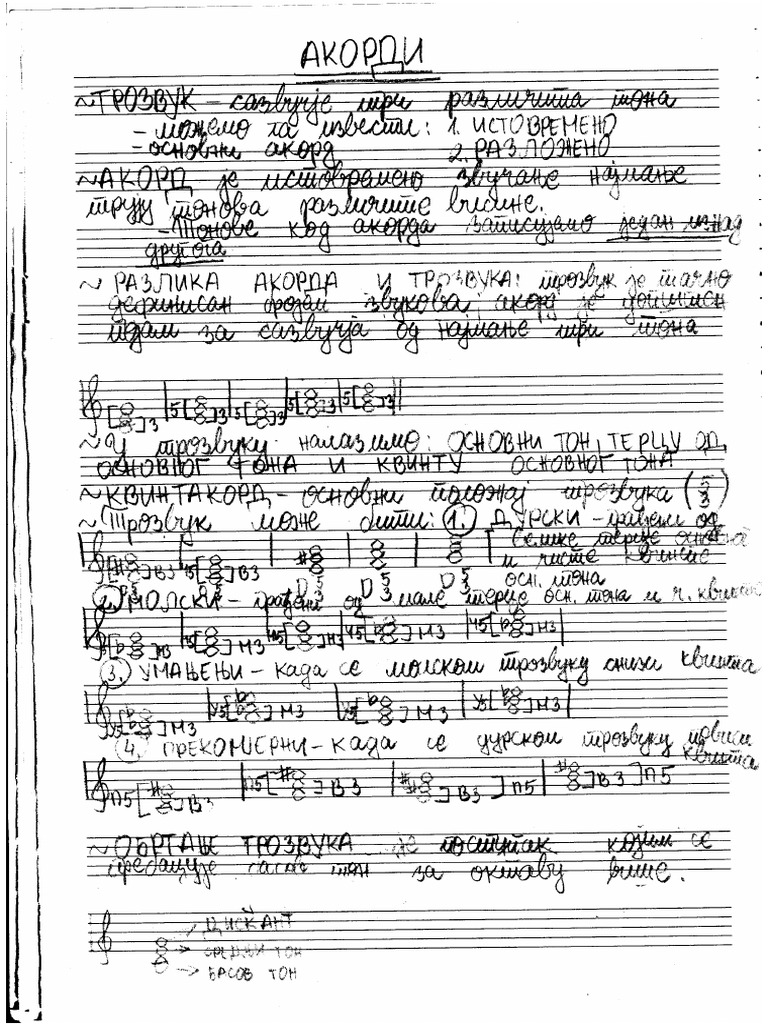 АКОРДИ
~ТРОЗВУК – сазвучје три различита тона
- можемо га извести: 1. ИСТОВРЕМЕНО
- основни акорд 2. РАЗЛОЖЕНО
~АКОРД је истовремено звучање најмање
трију тонова различите висине.
- Тонове код акорда записујемо један изнад
другога
~ РАЗЛИКА АКОРДА И ТРОЗВУКА: трозвук је тачно
дефинисан звукова, акорд је
за сазвучја од најмање три тона
[ ]3 5[ ]3 5[ ]3 5[ ]3 5[ ]3
~ У трозвуку налазимо: ОСНОВНИ ТОН, ТЕРЦУ ОД
ОСНОВНОГ ТОНА И КВИНТУ ОСНОВНОГ ТОНА
~КВИНТАКОРД – основни положај трозвука (5/3)
~ Трозвук може бити: 1. ДУРСКИ – грађени од
велике терце основног
и чисте квинте
осн. тона
2. МОЛСКИ – грађени од мале терце осн. тона и ч. квинте
3. УМАЊЕЊИ – када се молском трозвуку снизи квинта
4. ПРЕКОМЈЕРНИ – када се дурском трозвуку повиси
квинта
п5[ ]В3 п5[ ]В3 [ ]В3]п5 [ ]В3]п5
~ ОБРТАЊЕ ТРОЗВУКА је поступак којим се
пребацује басов тон за октаву више.
ДИСКАНТ
СРЕДЊИ ТОН
БАСОВ ТОН